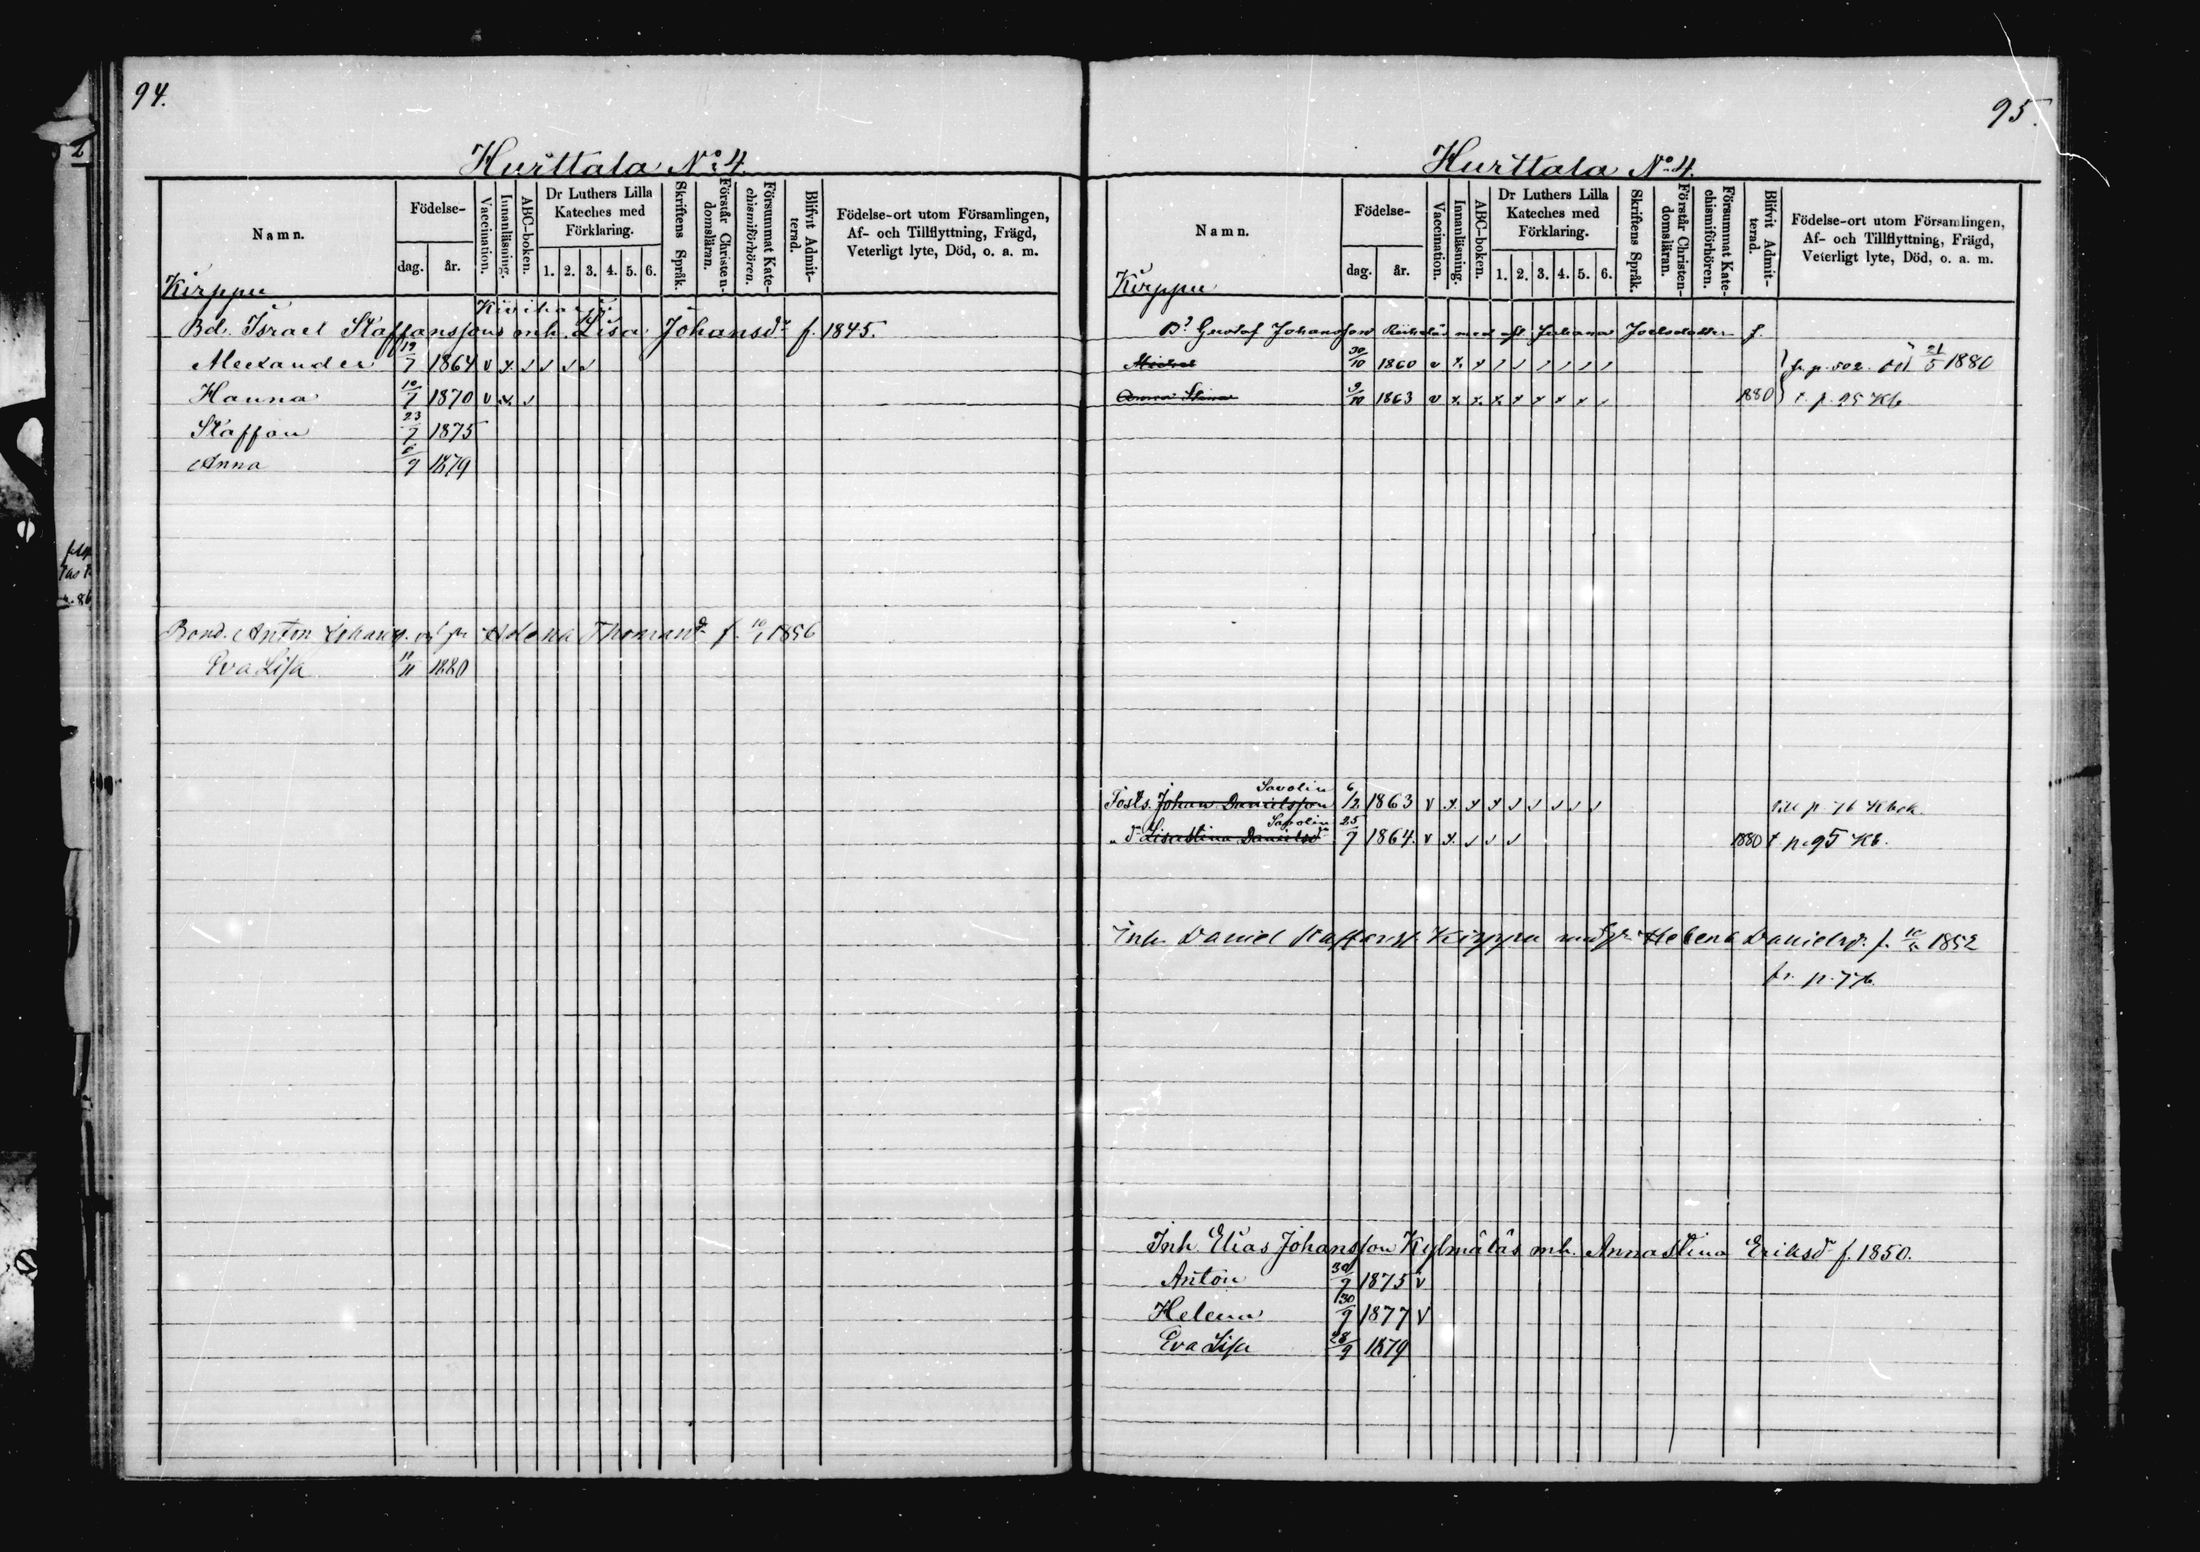 94.
Hurttala No 4.
Namn.
Födelse-
dag.
år.
Vaccination.
Innanläsning.
ABC-boken.
Dr Luthers Lilla Kateches med Förklaring.
1. 2. 3. 4. 5. 6.
Skriftens Språk.
Förstår Christendomsläran.
Försummat Katechismiförhören.
Blifvit Admitterad.
Födelse-ort utom Församlingen, Af- och Tillflyttning, Frägd, Veterligt lyte, Död, o. a. m.
Kirppu
Bd. Israel Staffansson mh. Lisa Johansdr f. 1845.
Alexander 19/7 1864 v x
Hanna 10/7 1870 v x
Staffan 23/7 1875
Anna 6/9 1879
Bond. Anton Helena Thomasdr f. 10/1 1856
Eva Lisa 11/11 1880
95.
Hurttala No 4.
Namn.
Födelse-
dag.
år.
Vaccination.
Innanläsning.
ABC-boken.
Dr Luthers Lilla Kateches med Förklaring.
1. 2. 3. 4. 5. 6.
Skriftens Språk.
Förstår Christendomsläran.
Försummat Katechismiförhören.
Blifvit Admitterad.
Födelse-ort utom Församlingen, Af- och Tillflyttning, Frägd, Veterligt lyte, Död, o. a. m.
Kirppu
Bd Gustaf Johansson med Juliana Joelsdotter f.
30/10 1860 v fr. p. 502. 21/5 1880
Anna Stina 9/10 1863 v 1880 t. p. 95 Kb
Savolin
Fosts. Johan Danielsson 6/2 1863 v
Savolin
" d Lisastina Danielsdr 25/7 1864. v 1880 t p. 95 Kb.
Inh. Daniel Staffanss. Kirppu Helena Danielsdr f. 1852
fr. p. 776.
Inh. Elias Johansson Kylmälä mh. Annastina Eriksdr f. 1850.
Anton 30/9 1875 v
Helena 30/9 1877 v
Eva Lisa 28/9 1879